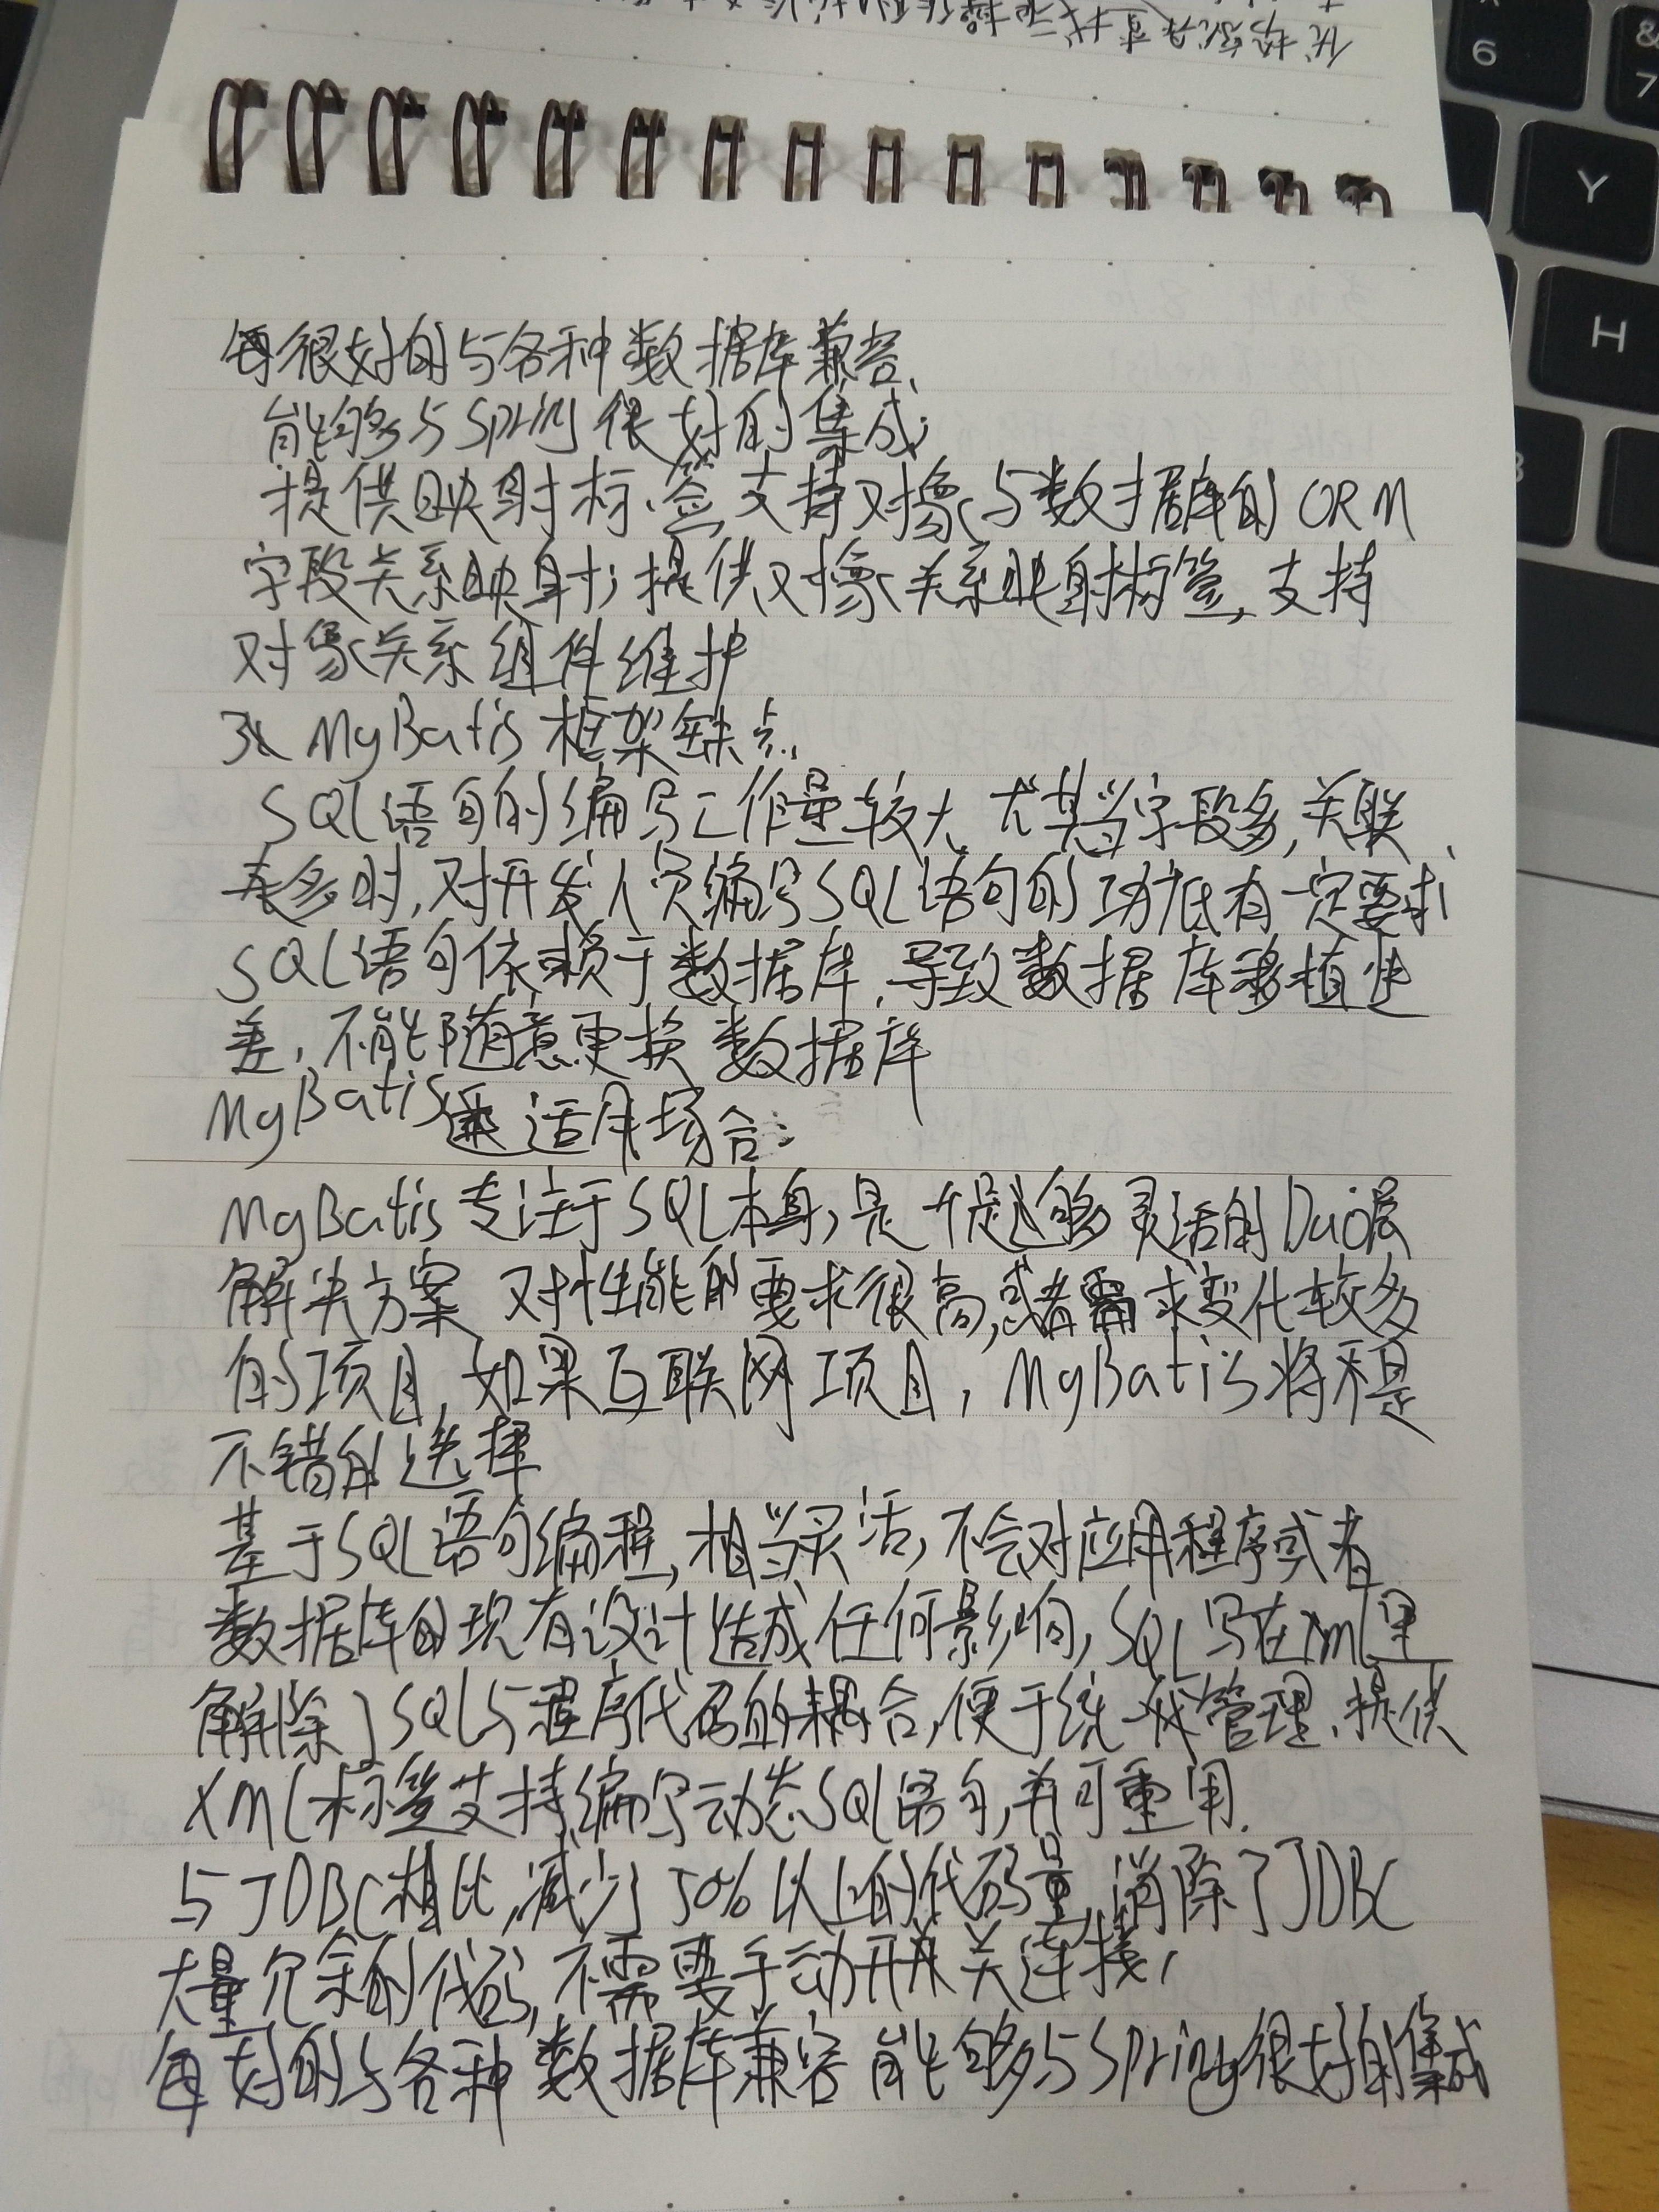 很好的与各种数据库兼容、
能够与Spring很好的集成;
提供映射标签,支持对象与数据库的ORM
字段关系映射;提供对象关系映射标签,支持
对象关系组件维护
3、MyBatis框架缺点、
SQL语句的编写工作量较大,尤其当字段多,关联、
表多时,对开发人员编写SQL语句的功底有一定要求
SQL语句依赖于数据库,导致数据库移植性
差,不能随意更换数据库
MyBatis适用场合:
MyBatis专注于SQL本身,是个足够灵活的Dao层
解决方案,对性能的要求很高,或者需求变化较多
的项目,如果互联网项目,MyBatis将是
不错的选择
基于SQL语句编程,相当灵活,不会对应用程序或者
数据库的现有设计造成任何影响,SQL写在xml里
解除了SQL与程序代码的耦合,便于统一管理,提供
XML标签支持编写动态SQL语句,并可重用.
与JDBC相比,减少了50%以上的代码量,消除了JDBC
大量冗余的代码,不需要手动开关连接,
好的与各种数据库兼容 能够与Spring很好的集成
6
&
7
Y
H